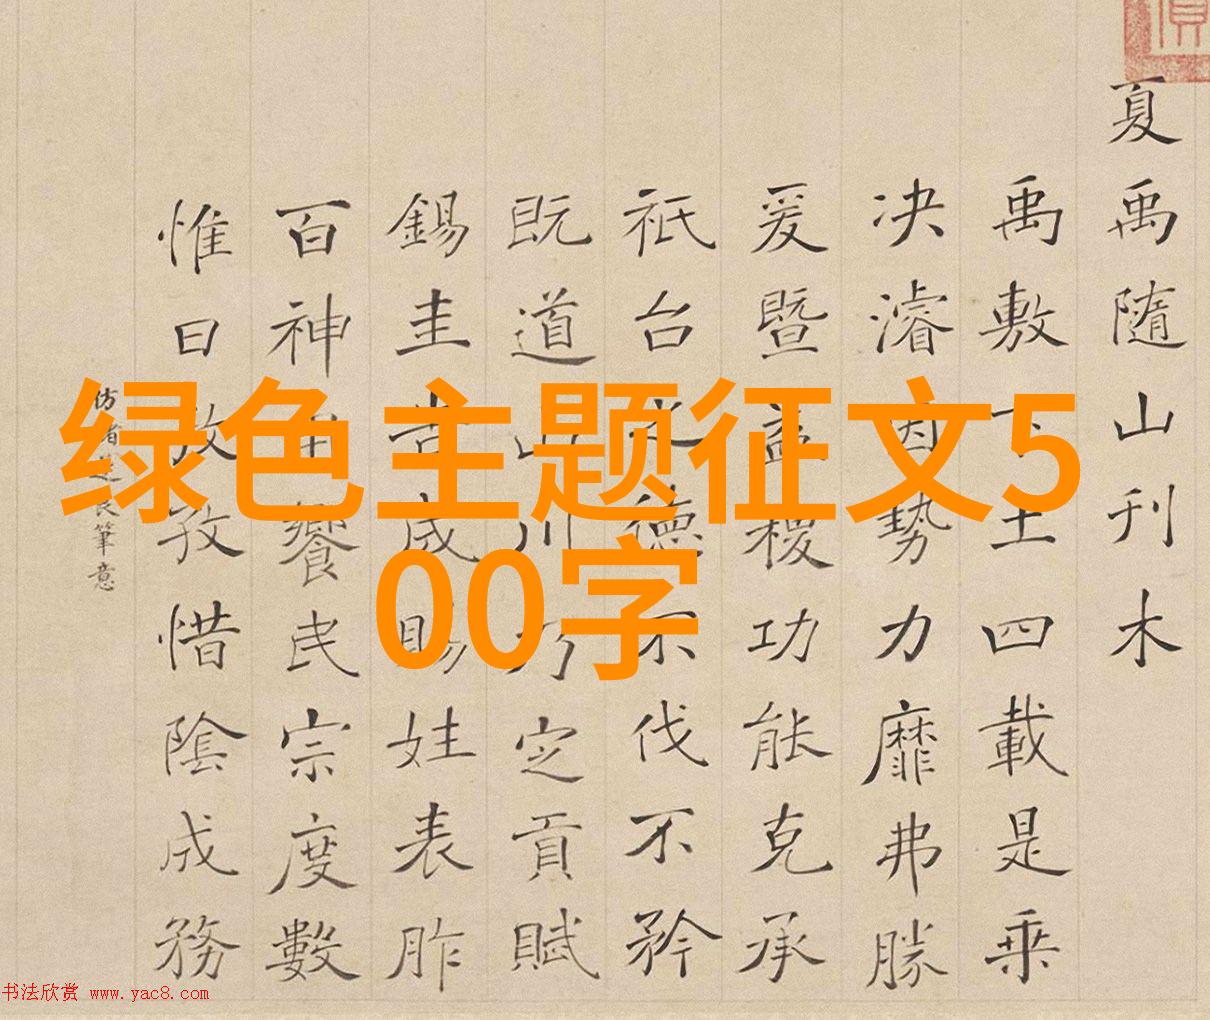 绿色主题征文5
00字
夏禹隨山刊木
禹敷下土四載是乘
决濬因勢力靡弗勝
爰暨益稷功能克承
祇台德不伐不矜
既道山川乃定貢賦
錫圭告成賜姓表胙
百神饗民宗度數
惟日孜孜惜陰成務
仿褚遂良筆意
书法欣赏 www.yac8.com